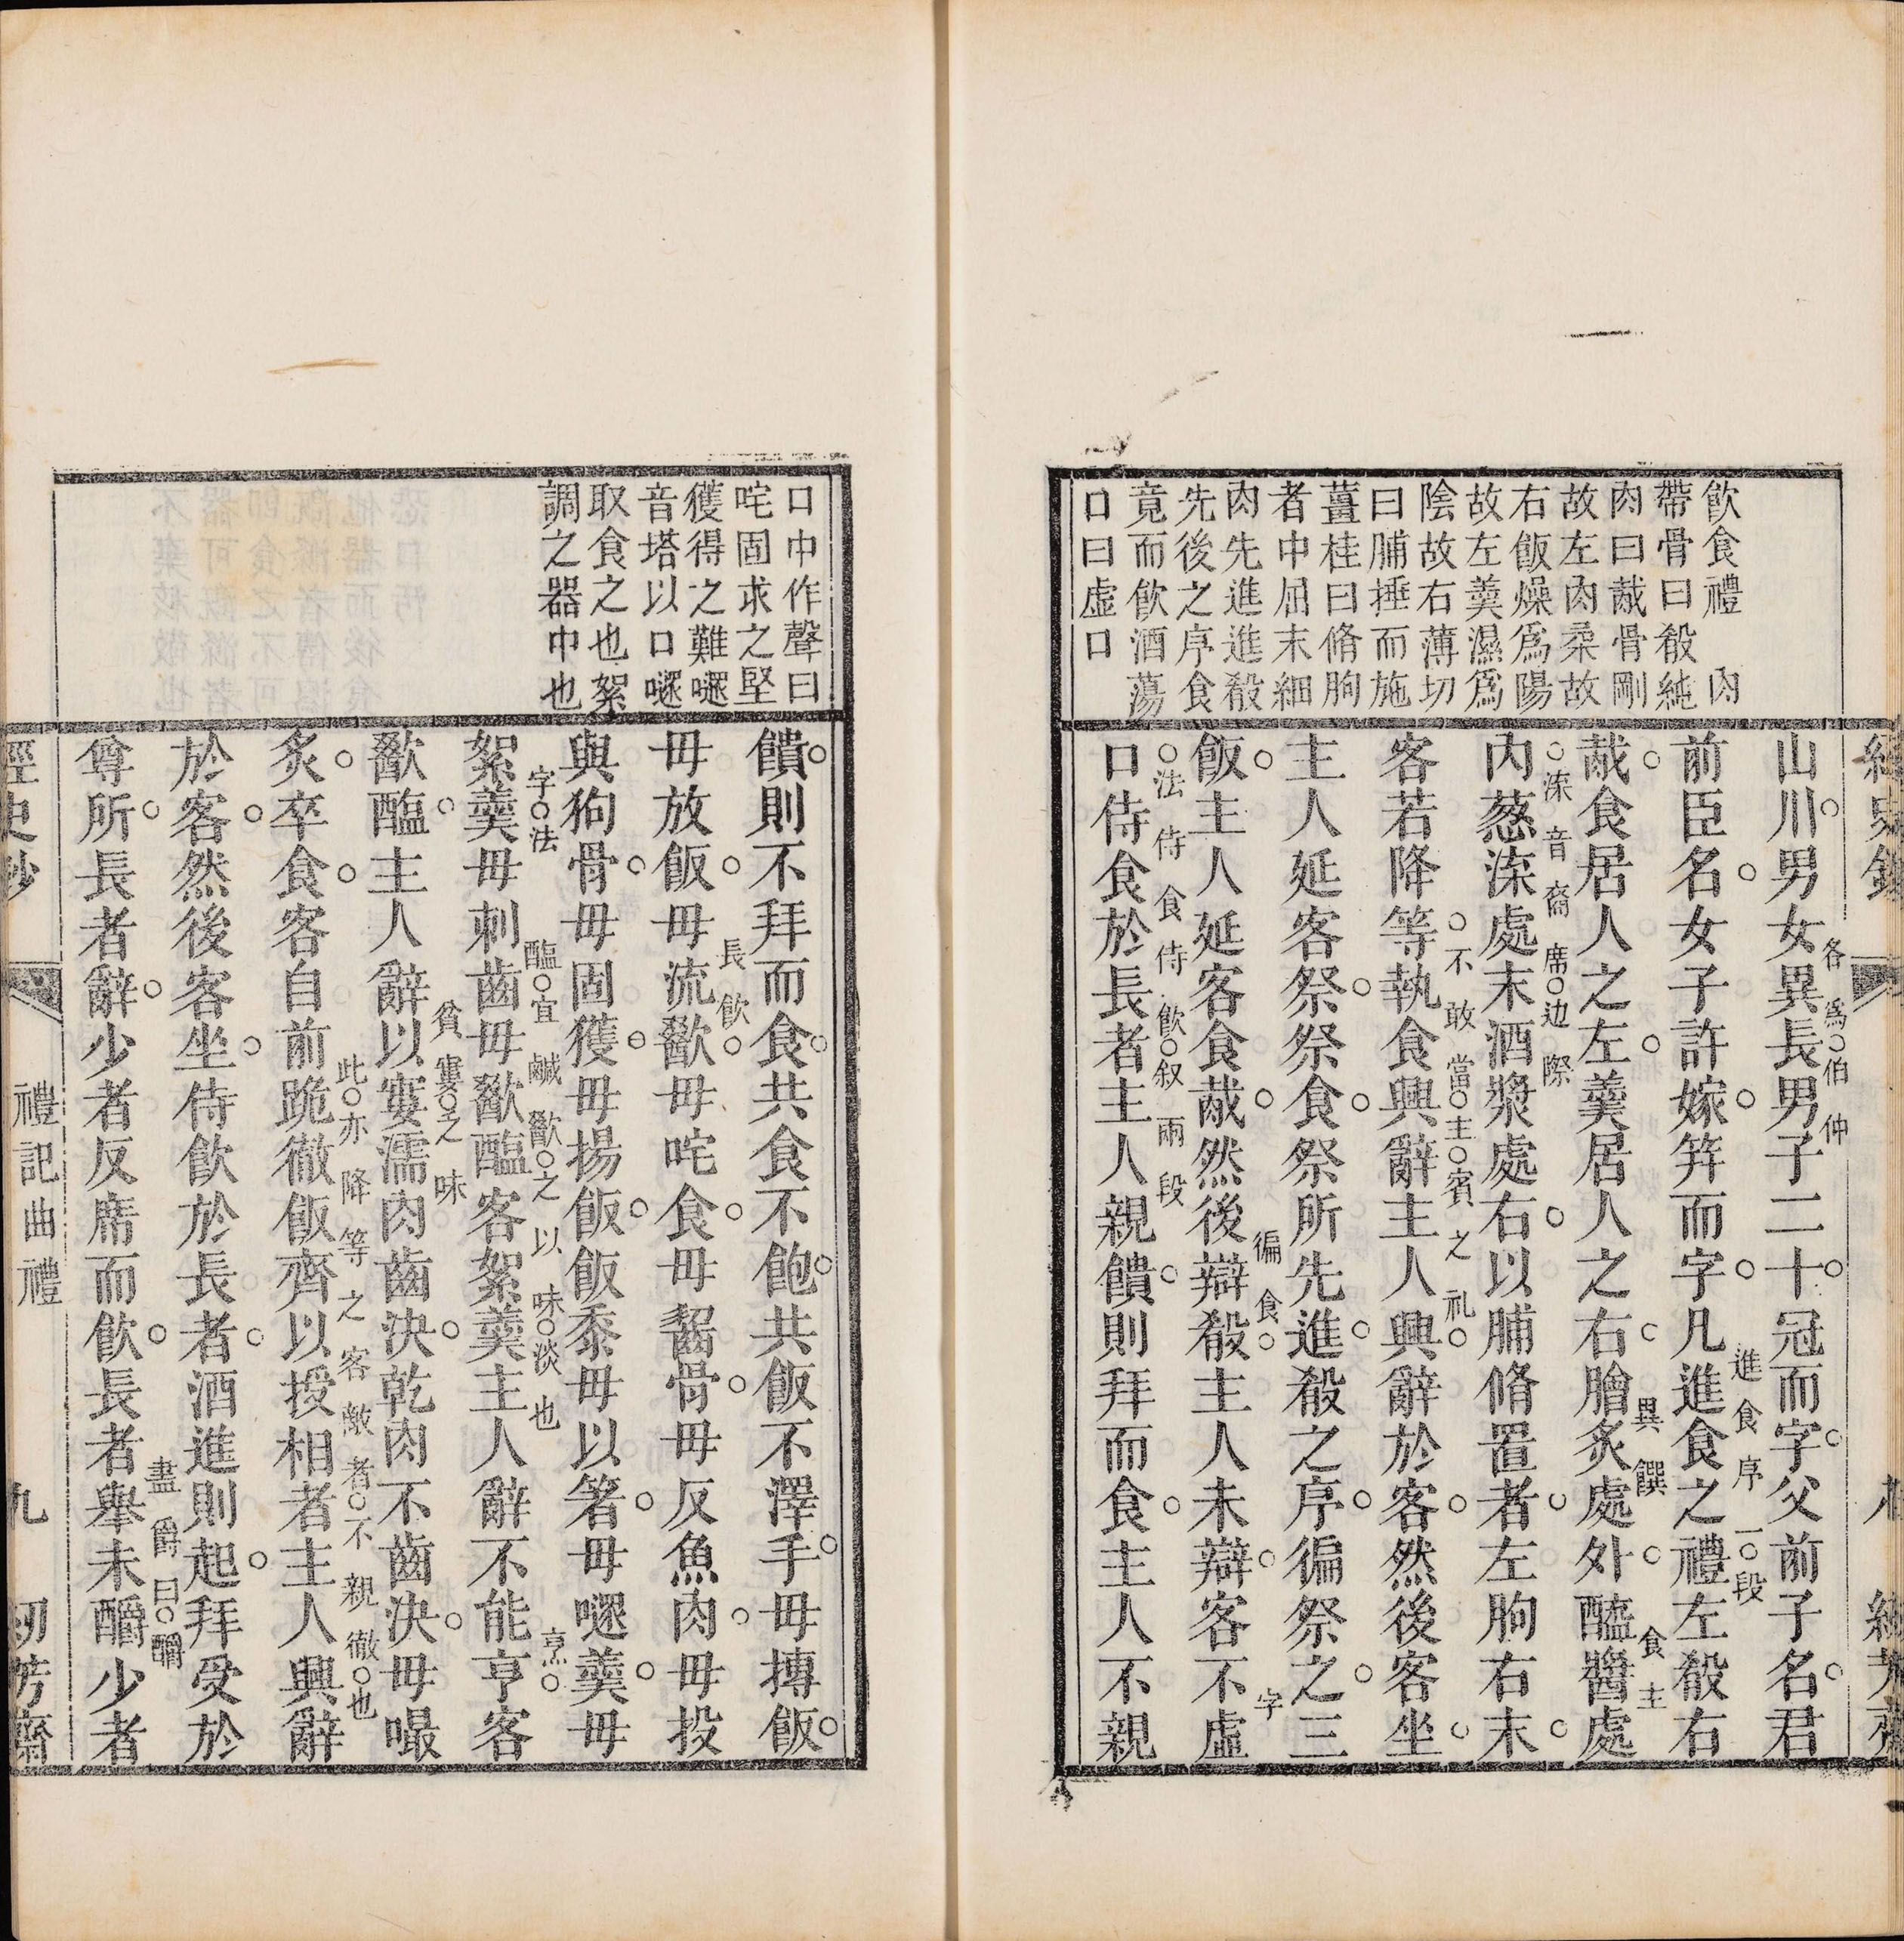 飲食禮 肉
帶骨曰殽純
肉曰胾骨剛
故左肉柔故
右飯燥爲陽
故左羹濕爲
陰故右薄切
曰脯捶而施
薑桂曰脩朐
者中屈末細
肉先進進殽
先後之序食
竟而飲酒蕩
口曰虛口
山川男女異長男子二十冠而字父前子名君
各爲伯仲
前臣名女子許嫁笄而字凡進食之禮左殽右
進食序一段
胾食居人之左羹居人之右膾炙處外醯醬處
異饌 食主
內蔥渫處末酒漿處右以脯脩置者左朐右末
渫音裔 席边際
客若降等執食興辭主人興辭於客然後客坐
不敢當主賓之礼
主人延客祭祭食祭所先進殽之序徧祭之三
飯主人延客食胾然後辯殽主人未辯客不虛
徧食 字
口侍食於長者主人親饋則拜而食主人不親
法侍食侍飲叙兩段
口中作聲曰
咤固求之堅
獲得之難嚃
音塔以口嚃
取食之也絮
調之器中也
饋則不拜而食共食不飽共飯不澤手毋摶飯
毋放飯毋流歠毋咤食毋齧骨毋反魚肉毋投
長飲
與狗骨毋固獲毋揚飯飯黍毋以箸毋嚃羹毋
絮羹毋刺齒毋歠醢客絮羹主人辭不能亨客
字法 醢宜鹹歠之以味淡也 烹
歠醢主人辭以窶濡肉齒決乾肉不齒決毋嘬
貧窶乏味
炙卒食客自前跪徹飯齊以授相者主人興辭
此亦降等之客敵者不親徹也
於客然後客坐侍飲於長者酒進則起拜受於
尊所長者辭少者反席而飲長者舉未釂少者
盡爵曰釂
經史鈔
禮記曲禮
九